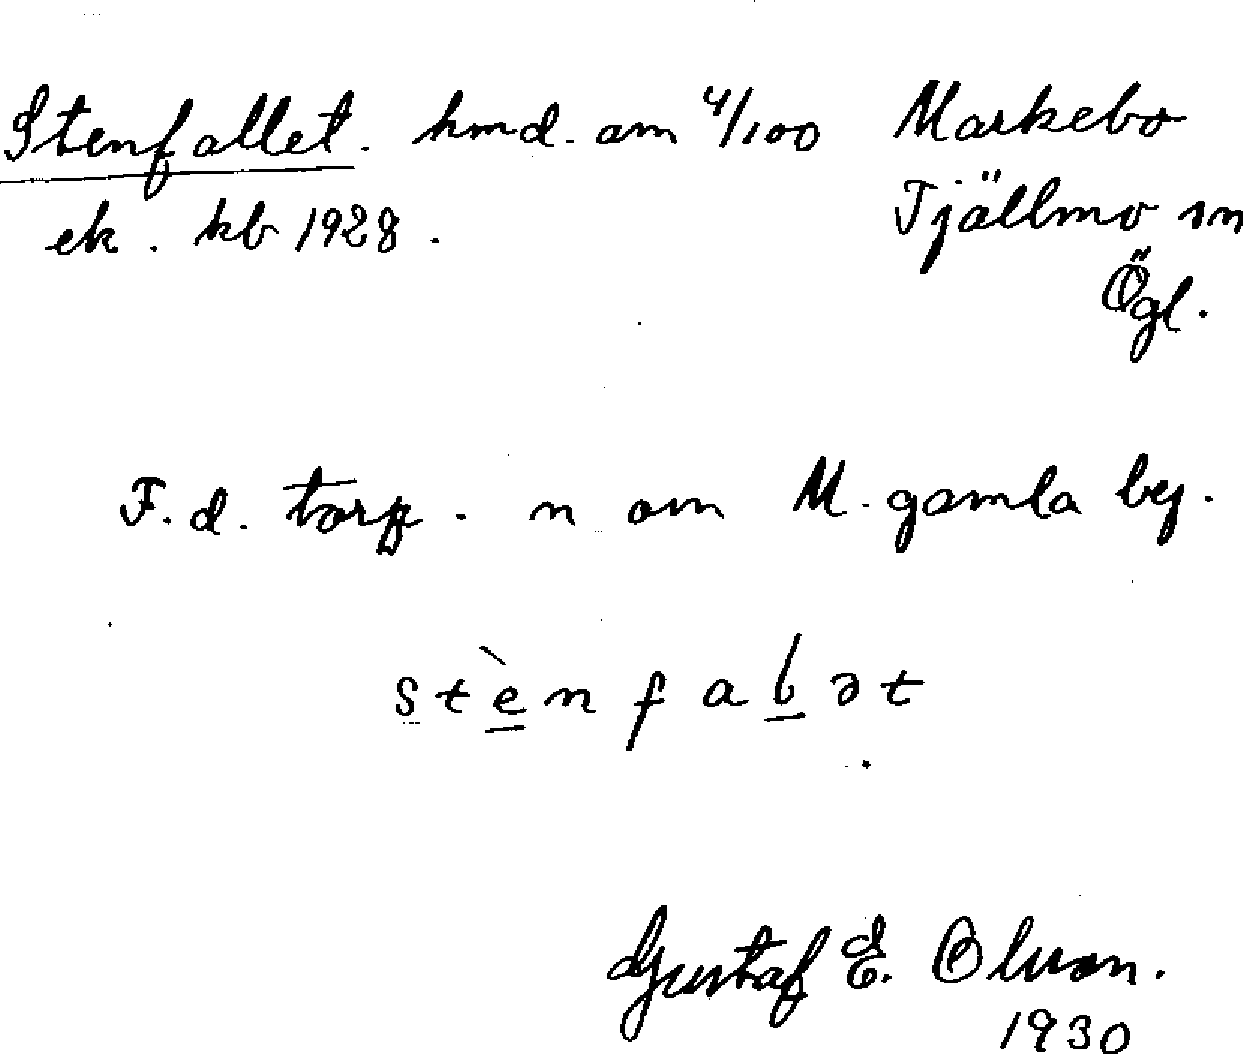 Stenfallet. hmd. om 4/100 Markebo
ek. kb 1928. Tjällmo sn
Ögl.
F.d. torp. n om M. gamla by.
stènfalət
Gustaf E. Olson.
1930